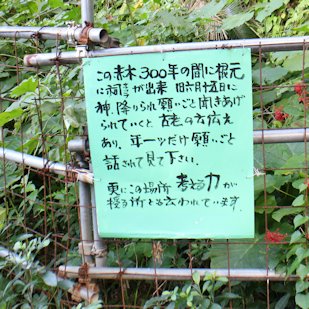 この赤木300年の間に根元
に祠が出来 旧六月十五日に
神、降りられ願いごと聞きあげ
られていくと 古老の云伝え
あり、年一ツだけ願いごと
話されて見て下さい。
更にこの場所 考える力が
授る所とも云われています。